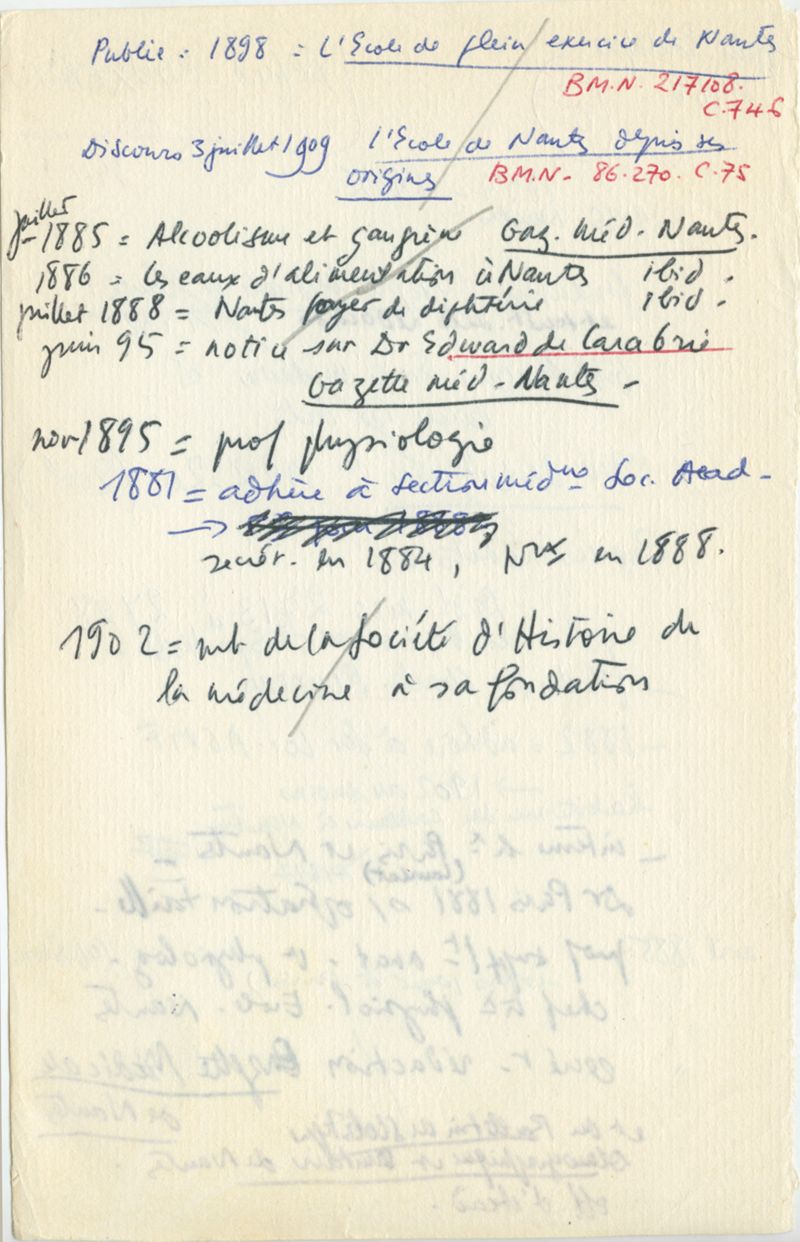 Publie : 1898 = L'Ecole de plein exercice de Nantes
B.M.N. 217108.
C.746
Discours 3 juillet 1909 L'Ecole de Nantes depuis ses
origines B.M.N- 86.270. C.75
juillet
1885 = Alcoolisme et gangrène Gaz. méd. Nantes.
1886 = les eaux d'alimentation à Nantes ibid.
juillet 1888 = Nantes foyer de diphtérie ibid.
juin 95 = notice sur Dr Edward de
Gazette méd. Nantes -
nov 1895 = prof physiologie
1881 = adhère à section Soc. Acad-
→
secrét. en 1884, en 1888.
1902 = mb de la Société d'Histoire de
la médecine à sa fondation